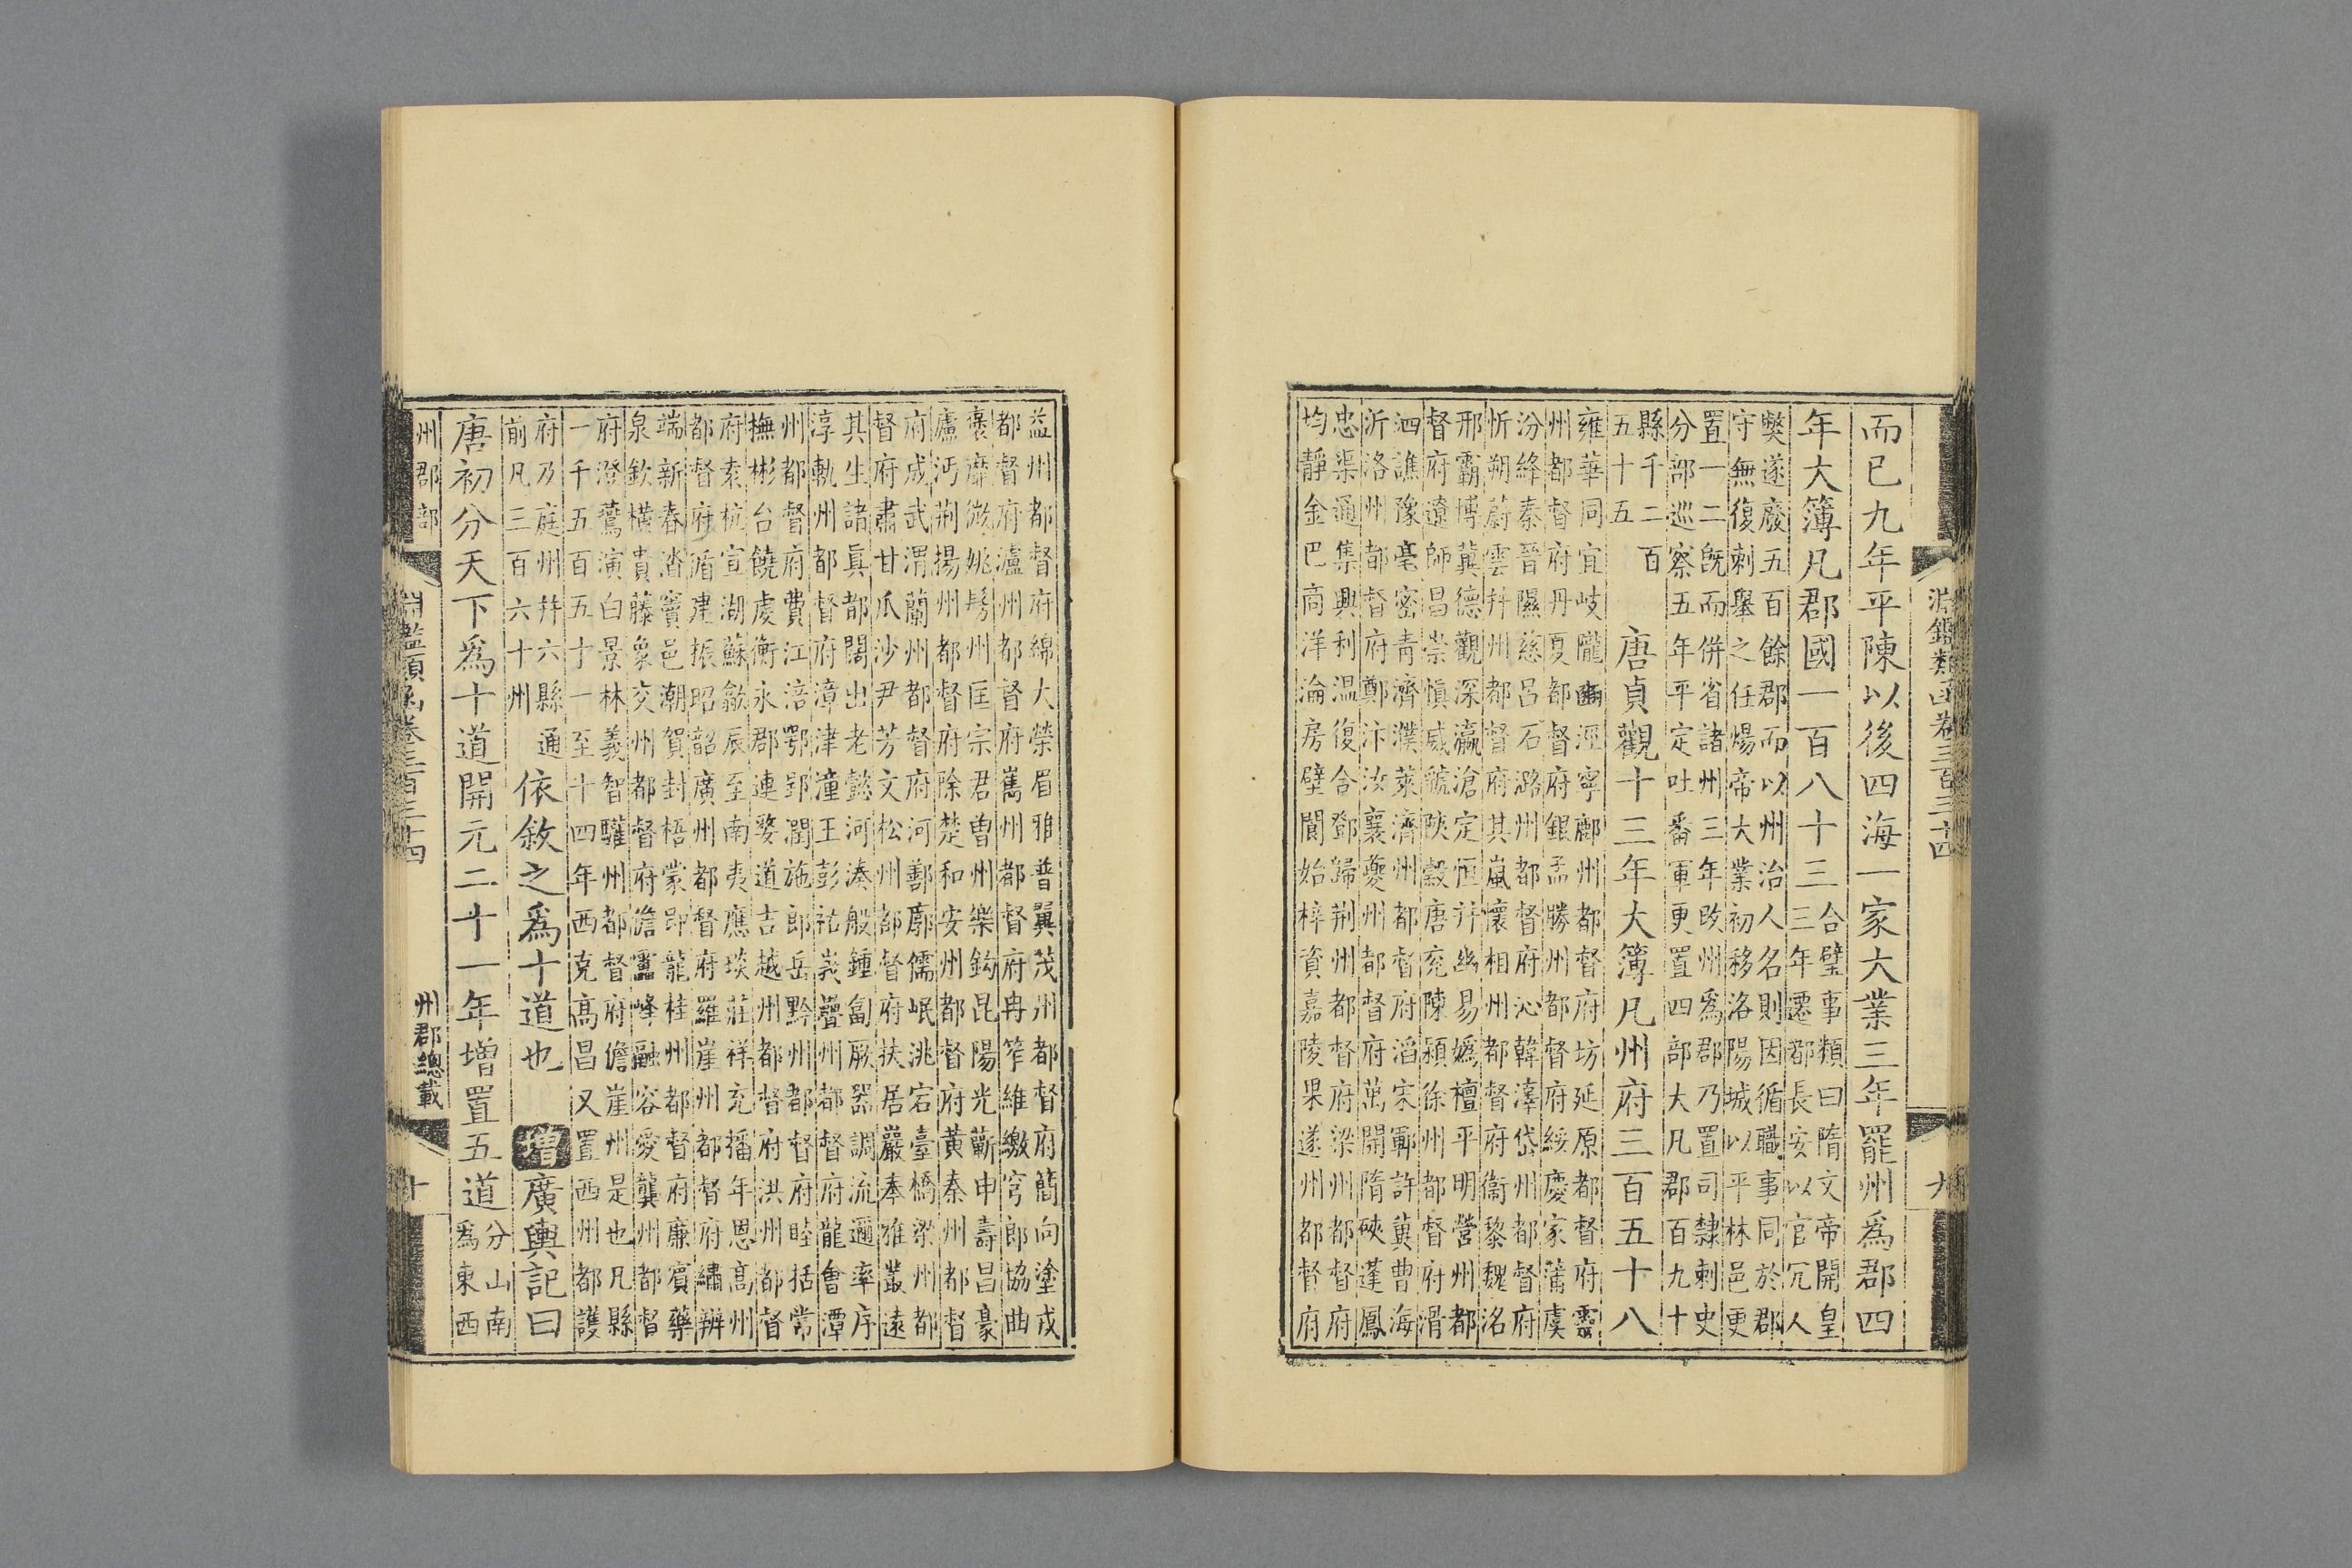 淵鑑類函卷三百三十四
九
而已九年平陳以後四海一家大業三年罷州爲郡四
年大簿凡郡國一百八十三
合璧事類曰隋文帝開皇
三年遷都長安以官冗人
獘遂廢五百餘郡而以州治人名則因循職事同於郡
守無復刺舉之任煬帝大業初移洛陽城以平林邑更
置一二旣而併省諸州三年改州爲郡乃置司隸刺史
分部巡察五年平定吐番軍更置四部大凡郡百九十
縣千二百
五十五
唐貞觀十三年大簿凡州府三百五十八
雍華同宜岐隴豳涇寧鄜州都督府坊延原都督府靈
州都督府丹夏都督府銀孟勝州都督府綏慶家蒲虞
汾絳秦晉隰慈呂石潞州都督府沁韓澤岱州都督府
忻朔蔚雲幷州都督府其嵐懷相州都督府衞黎魏洺
邢霸博冀德觀深瀛滄定恒幷幽易嬀檀平明營州都
督府遼師昌崇愼威虢陝穀唐兖陳潁徐州都督府渭
泗譙豫亳密靑濟濮萊濟州都督府滔宋鄆許冀曹海
沂洛州都督府鄭汴汝襄夔州都督府萬開隋硤蓬鳳
忠渠通集興利温復合鄧歸荆州都督府梁州都督府
均靜金巴商洋淪房壁閬始梓資嘉陵果遂州都督府
益州都督府綿大榮眉雅普翼茂州都督府簡向塗戎
都督府瀘州都督府嶲州都督府冉笮維繳穹郎協曲
褒靡微姚髳州匡宗君曽州樂鈎昆陽光蘄申壽昌豪
廬沔荆揚州都督府除楚和安州都督府黃秦州都督
府成武渭蘭州都督府河鄯廓儒岷洮宕臺橋梁州都
督府肅甘瓜沙尹芳文松州都督府扶居巖奉雅叢遠
其生諸眞都闊出老懿河湊般鍾匐厥器調流邇率序
淳軌州都督府漳津潼王彭祐嶲疊州都督府龍會潭
州都督府費江涪鄂郢潤施郎岳黔州都督府睦括常
撫彬台饒虔衡永郡連婺道吉越州都督府洪州都督
府袁杭宣湖蘇歙辰至南夷應琰莊祥充播年恩高州
都督府循建振昭韶廣州都督府羅崖州都督府繡辨
端新春㳫竇邑潮賀封梧蒙昂龍桂州都督府廉賓藥
泉欽橫貴藤象交州都督府澹靈峰融容愛龔州都督
府澄鶯演白景林義智驩州都督府儋崖州是也凡縣
一千五百五十一至十四年西克高昌又置西州都護
府乃庭州幷六縣通
前凡三百六十州
依敘之爲十道也 增廣輿記曰
唐初分天下爲十道開元二十一年增置五道
分山南
爲東西
州郡部
淵鑑類函卷三百三十四
州郡總載
十